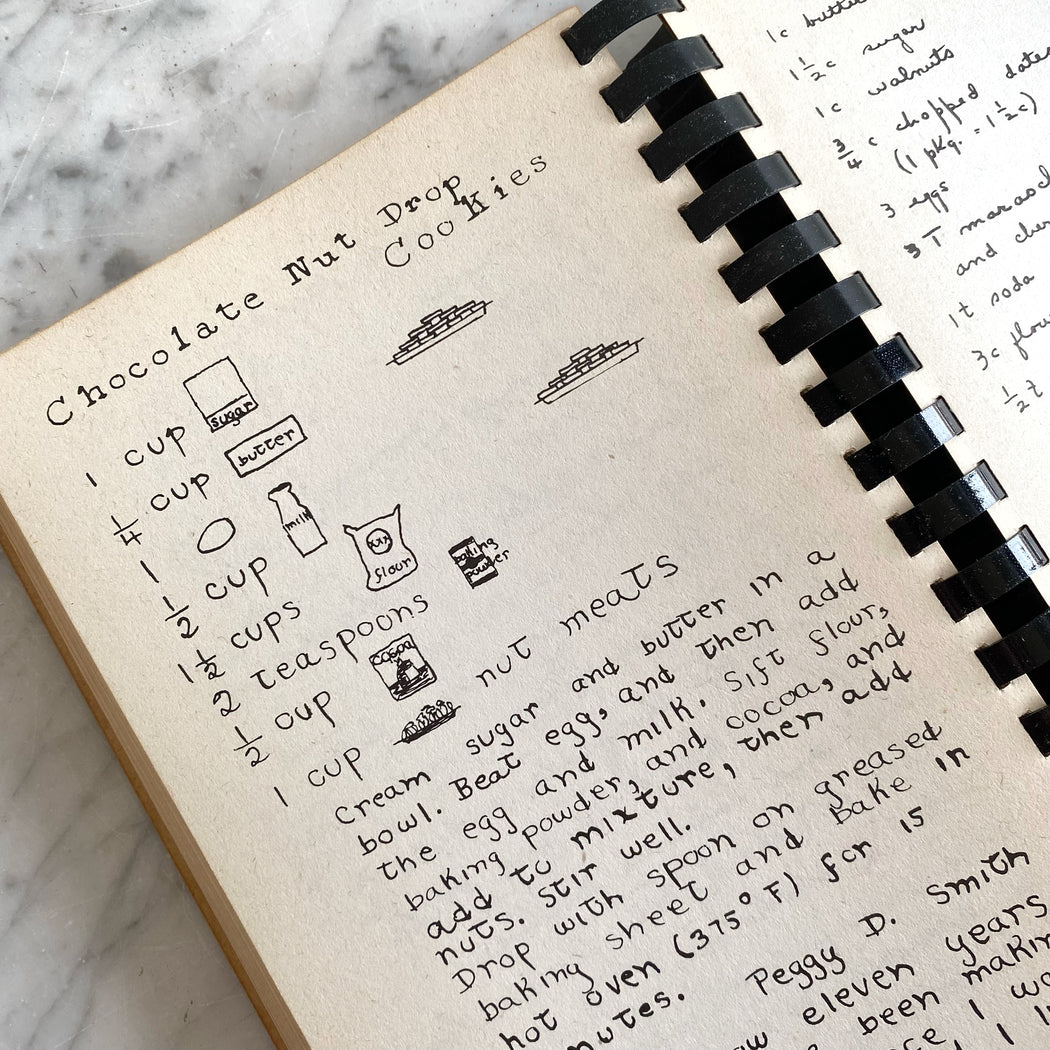 Chocolate Nut Drop
Cookies
1 cup sugar
1/4 cup butter
1
1/2 cup milk
1 1/2 cups XXX flour
2 teaspoons baking powder
1/2 cup cocoa
1 cup nut meats
Cream sugar and butter in a
bowl. Beat egg, and then add
the egg and milk. Sift flour,
baking powder, and cocoa, and
add to mixture, then add
nuts. Stir well.
Drop with spoon on greased
baking sheet and bake in
hot oven (375° F) for 15
nutes.
Peggy D. Smith
eleven years
been making
I
1c
1 1/2 c sugar
1c walnuts
3/4 c chopped dates
(1 pkg. = 1 1/2 c)
3 eggs
3 T
and
1t soda
3c
1/2 t